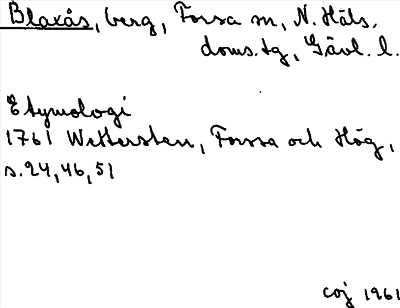 Blaxås, berg, Forsa sn, N. Häls.
doms.tg, Gävl. l.
Etymologi
1761 Wettersten, Forssa och Hög,
s.24,46,51
coj 1961